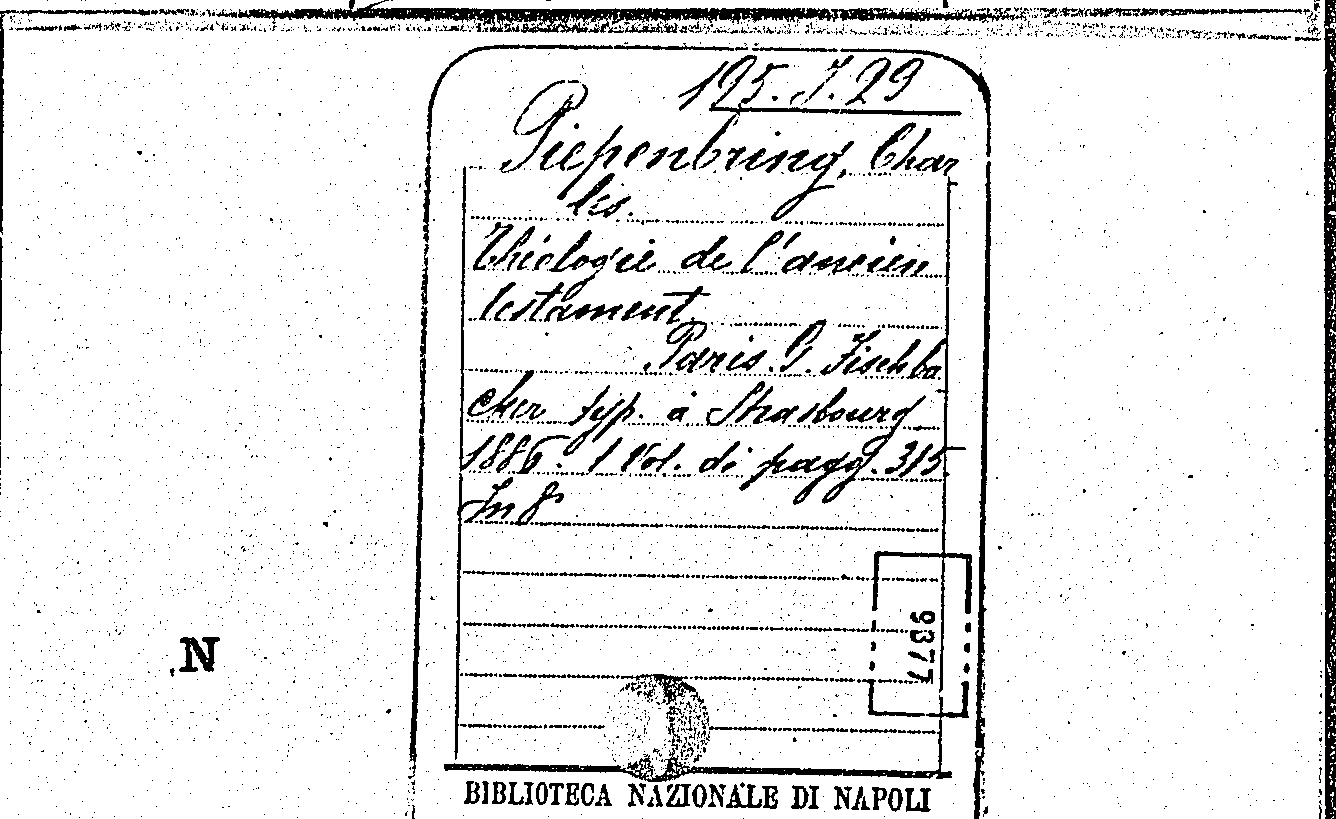 195. J. 29
Piepenbring, Char
les.
Théologie de l'ancien
testament
Paris. G. Fischba
cher typ. à Strasbourg
1886. 1 Vol. di pagg. 315.
In 8°
9377
N
BIBLIOTECA NAZIONALE DI NAPOLI